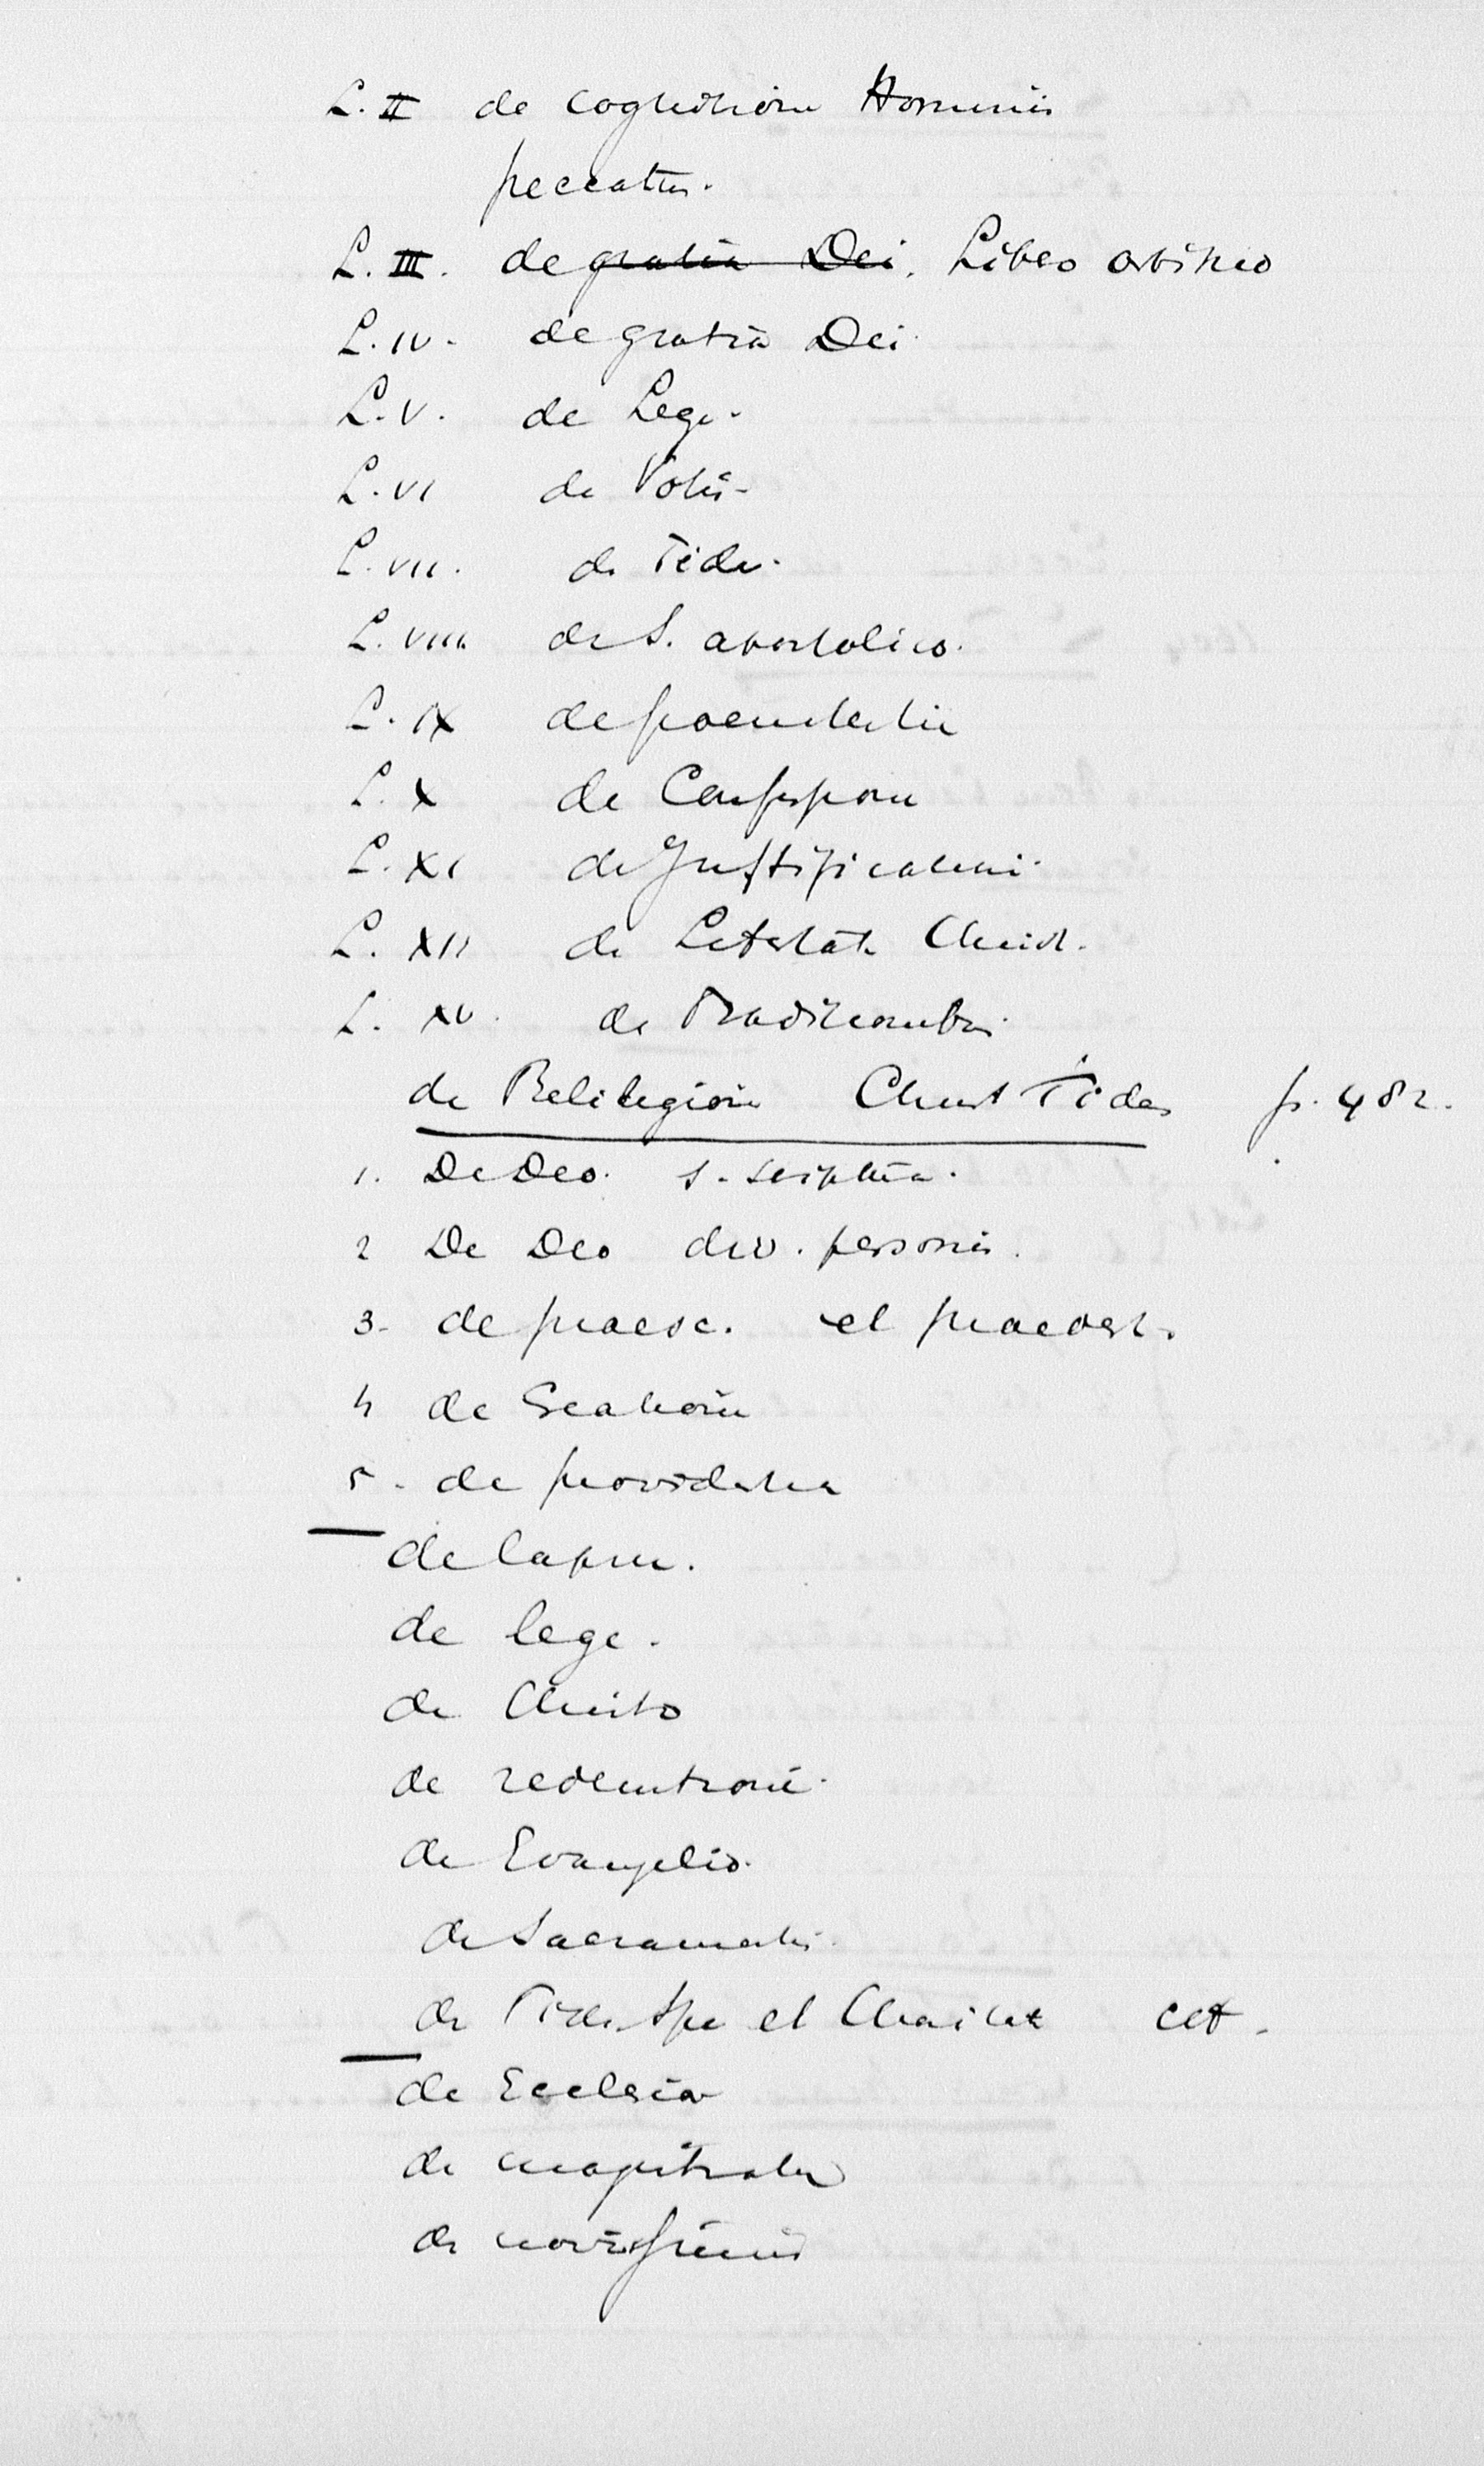 L. II de cognitione Hominis
peccatis.
L. III. de gratia Dei. Libero arbitrio
L. IV. de gratia Dei
L. V. de Lege.
L. VI de Votis.
L. VII. de Fide.
L. VIII. de S. apostolico.
L. IX de poenitentia
L. X de Confessione
L. XI de Justificatione.
L. XII de Libertate Christ.
L. XV. de Traditionibus.
de Religione Christ Fides p. 482.
1. De Deo. s. scriptura.
2 De Deo div. personis.
3. de praesc. et praedest.
4 de Creatione
5. de providentia
de lapsu.
de lege.
de Christo
de redemtione.
de Evangelio.
de Sacramentis.
de Fide, Spe et Charitate cet.
de Ecclesia
de magistratu
de novissimis